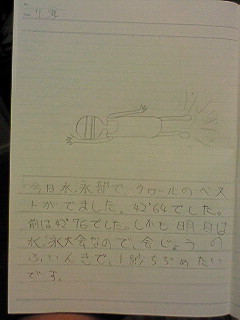 今日水泳部でクロールのベス
トがでました。42"64でした。
前は42"76でした。しかし明日は
水泳大会なので、会じょうの
ふんいきで、1秒ちぢめたい
です。